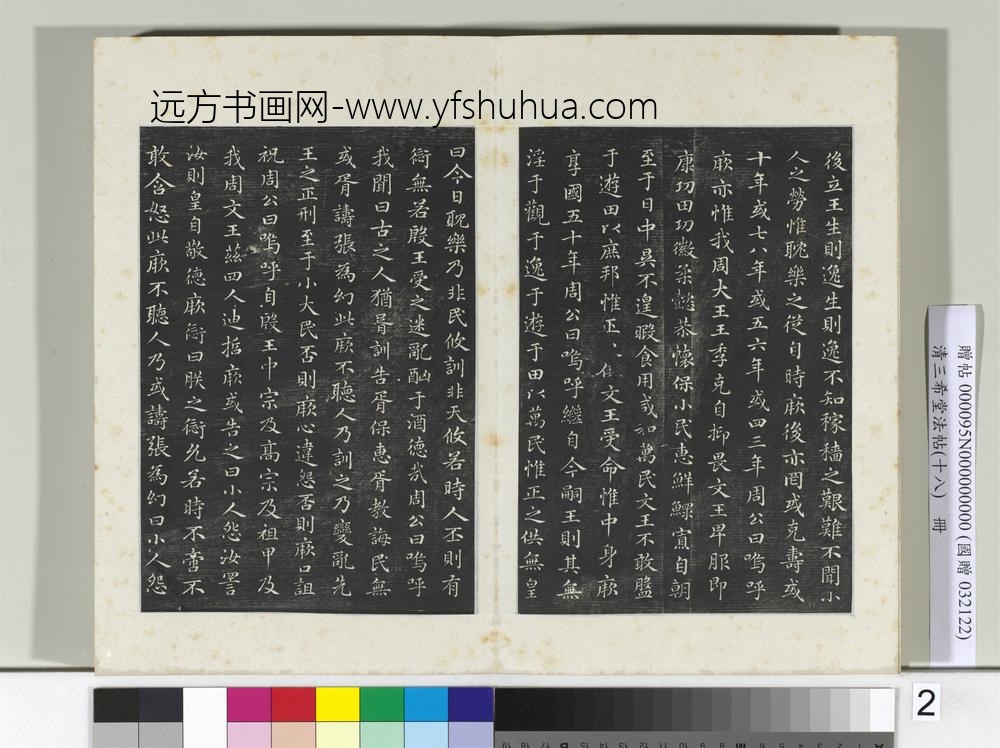 远方书画网-www.yfshuhua.com
後立王生則逸生則逸不知稼穡之艱難不聞小
人之勞惟耽樂之從自時厥後亦罔或克壽或
十年或七八年或五六年或四三年周公曰嗚呼
厥亦惟我周大王王季克自抑畏文王卑服即
康功田功徽柔懿恭懷保小民惠鮮鰥寡自朝
至于日中昃不遑暇食用咸和萬民文王不敢盤
于遊田以庶邦惟正、供文王受命惟中身厥
享國五十年周公曰嗚呼繼自今嗣王則其無
淫于觀于逸于遊于田以萬民惟正之供無皇
曰今日耽樂乃非民攸訓非天攸若時人丕則有
愆無若殷王受之迷亂酗于酒德哉周公曰嗚呼
我聞曰古之人猶胥訓告胥保惠胥教誨民無
或胥譸張為幻此厥不聽人乃訓之乃變亂先
王之正刑至于小大民否則厥心違怨否則厥口詛
祝周公曰嗚呼自殷王中宗及高宗及祖甲及
我周文王茲四人迪哲厥或告之曰小人怨汝詈
汝則皇自敬德厥愆曰朕之愆允若時不啻不
敢含怒此厥不聽人乃或譸張為幻曰小人怨
贈帖 000095N000000000 (國贈 032122)
清三希堂法帖(十八) 冊
2